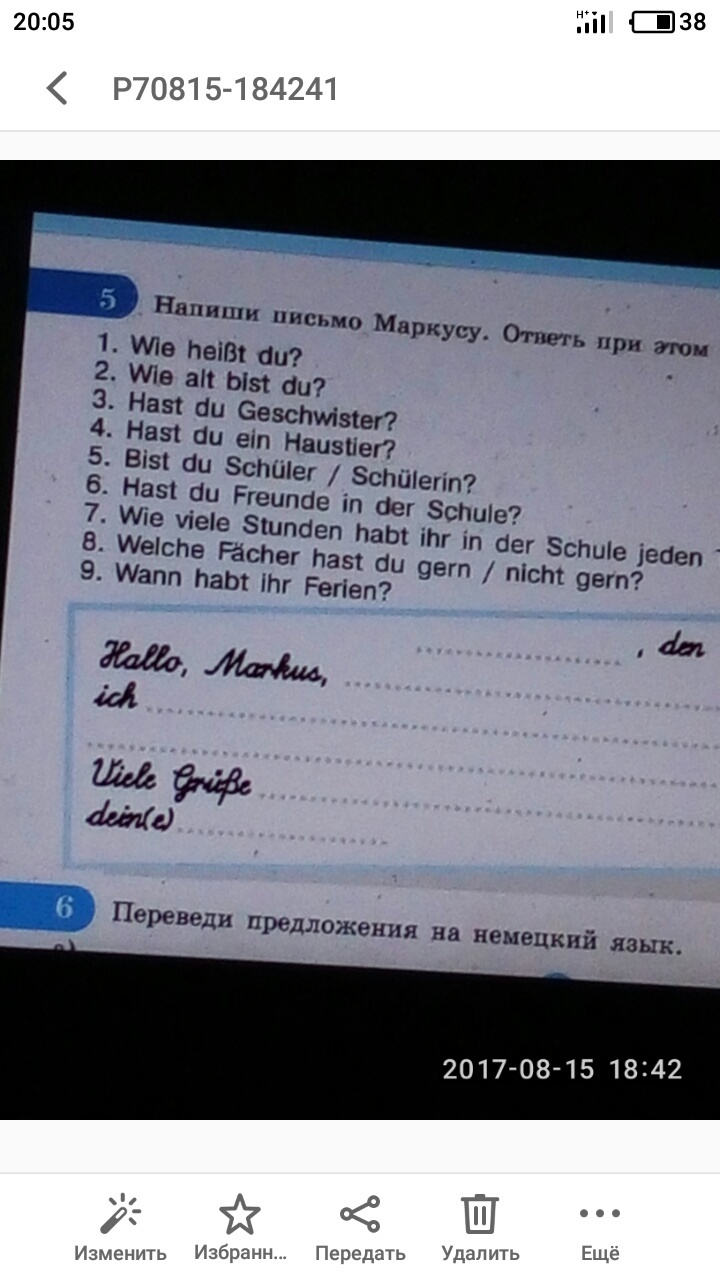 20:05
38
P70815-184241
5 Напиши письмо Маркусу. Ответь при этом
1. Wie heißt du?
2. Wie alt bist du?
3. Hast du Geschwister?
4. Hast du ein Haustier?
5. Bist du Schüler / Schülerin?
6. Hast du Freunde in der Schule?
7. Wie viele Stunden habt ihr in der Schule jeden
8. Welche Fächer hast du gern / nicht gern?
9. Wann habt ihr Ferien?
, den
Hallo, Markus,
ich
Viele Grüße
dein(e)
6 Переведи предложения на немецкий язык.
2017-08-15 18:42
Изменить Избранн... Передать Удалить Ещё